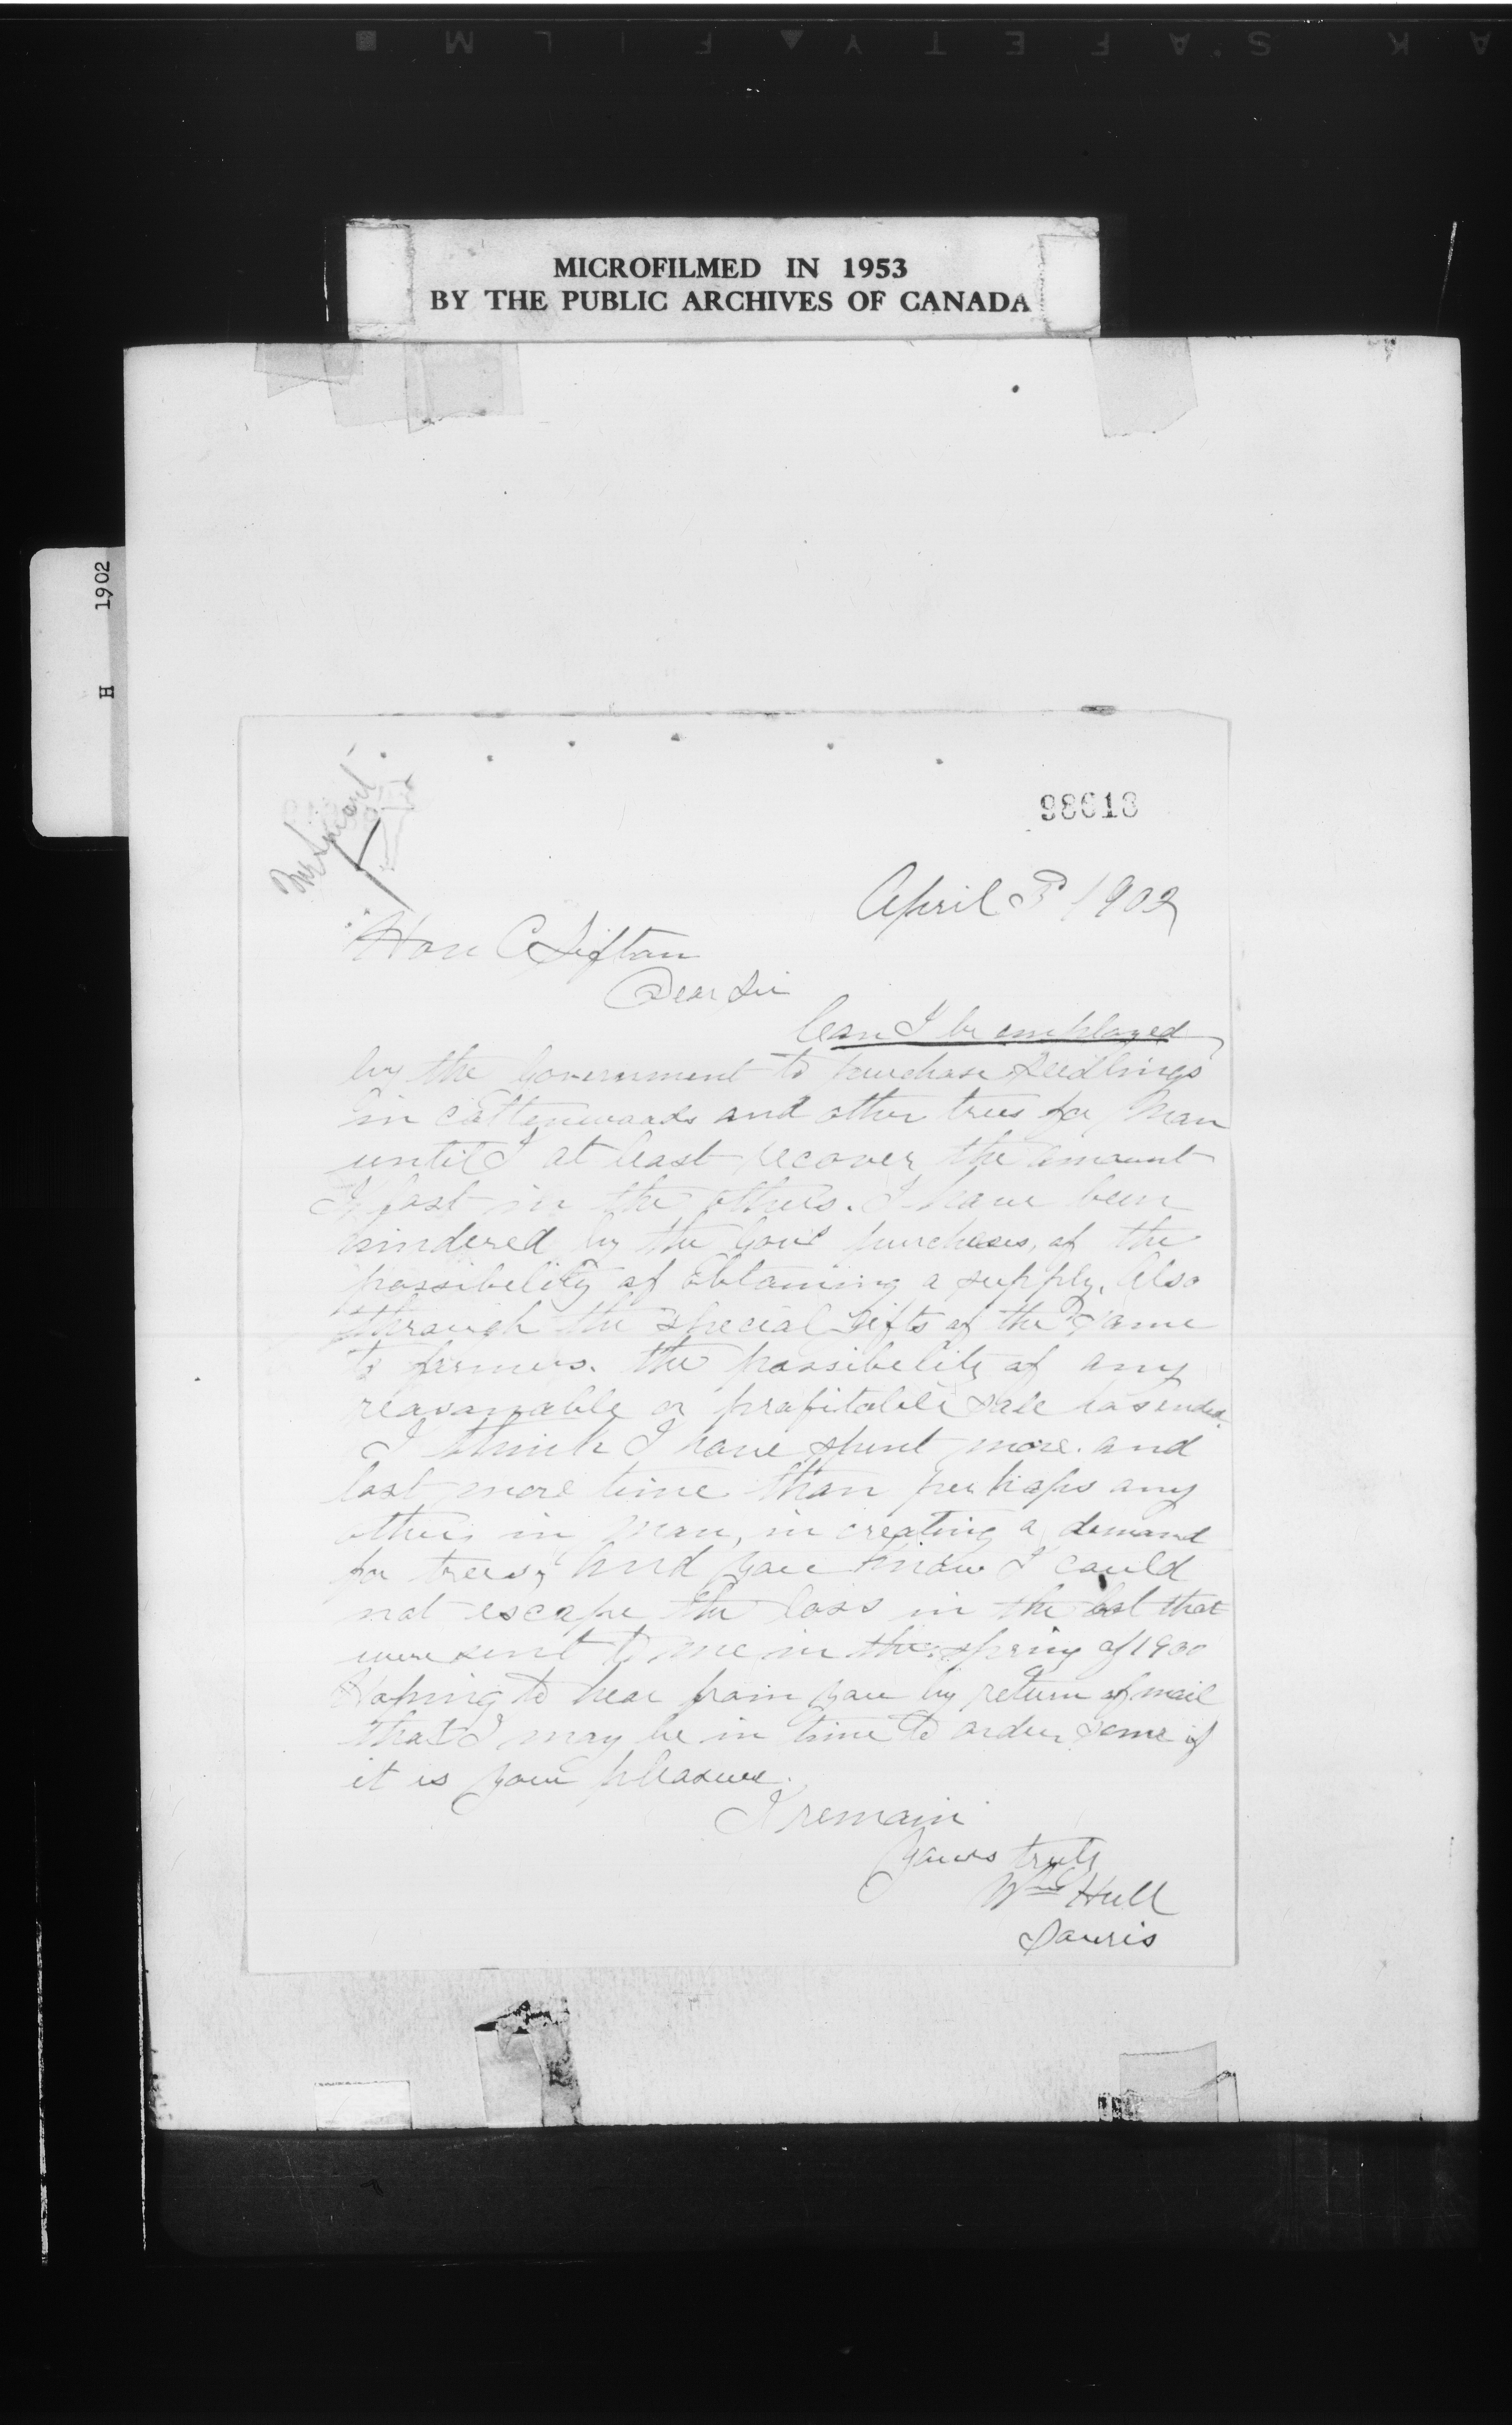 MICROFILMED IN 1953
BY THE PUBLIC ARCHIVES OF CANADA
H 1902
98618
April 3 1902
Hon C Sifton
Dear Sir
Can I be employed
by the Government to purchase seedlings
in cottenwoods and other trees for Man
until I at least recover the amount
I lost in the others. I have been
hindered by the Govt purchases, of the
possibility of obtaining a supply. Also
through the special gifts of the same
to farmers. the possibility of any
reasonable or profitable sale has ended.
I think I have spent more. and
lost more time than perhaps any
other in Man, in creating a demand
for trees, And you know I could
not escape the loss in the lot that
were sent to me in the spring of 1900
Hoping to hear from you by return of mail
that I may be in time to order some if
it is your pleasure.
I remain
Yours truly
Wm Hull
Souris